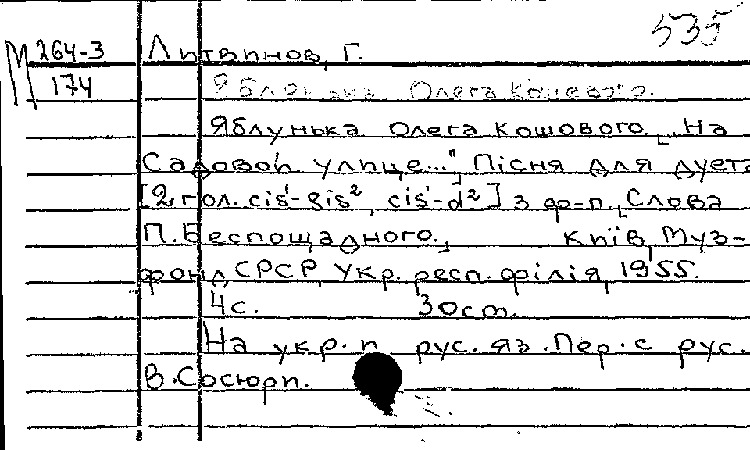 535
М 264-3 Литвинов, Г.
174 Яблунька Олега Кошевого.
Яблунька Олега Кошового. „На
Садовой улице...", Пісня для дуета
[2 гол. cis¹-gis², cis¹-d²] з ф-п. Слова
П. Беспощадного. Київ, Муз-
фонд СРСР, Укр. респ. філія, 1955.
4с. 30см.
На укр. и рус. яз. Пер. с рус.
В. Сосюри.